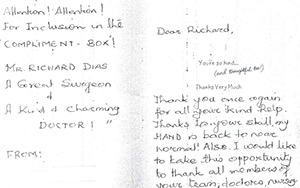 Attention! Attention!
For Inclusion in the
"COMPLIMENT-BOX"!
MR. RICHARD DIAS
A Great Surgeon
&
A Kind & Charming
DOCTOR! "
FROM:
Dear Richard,
You're so kind...
(and thoughtful too!)
Thanks Very Much
Thank you once again
for all your kind help.
Thanks to your skill, my
HAND is back to near
normal! Also, I would like
to take this opportunity
to thank all members of
your team, doctors, nurses